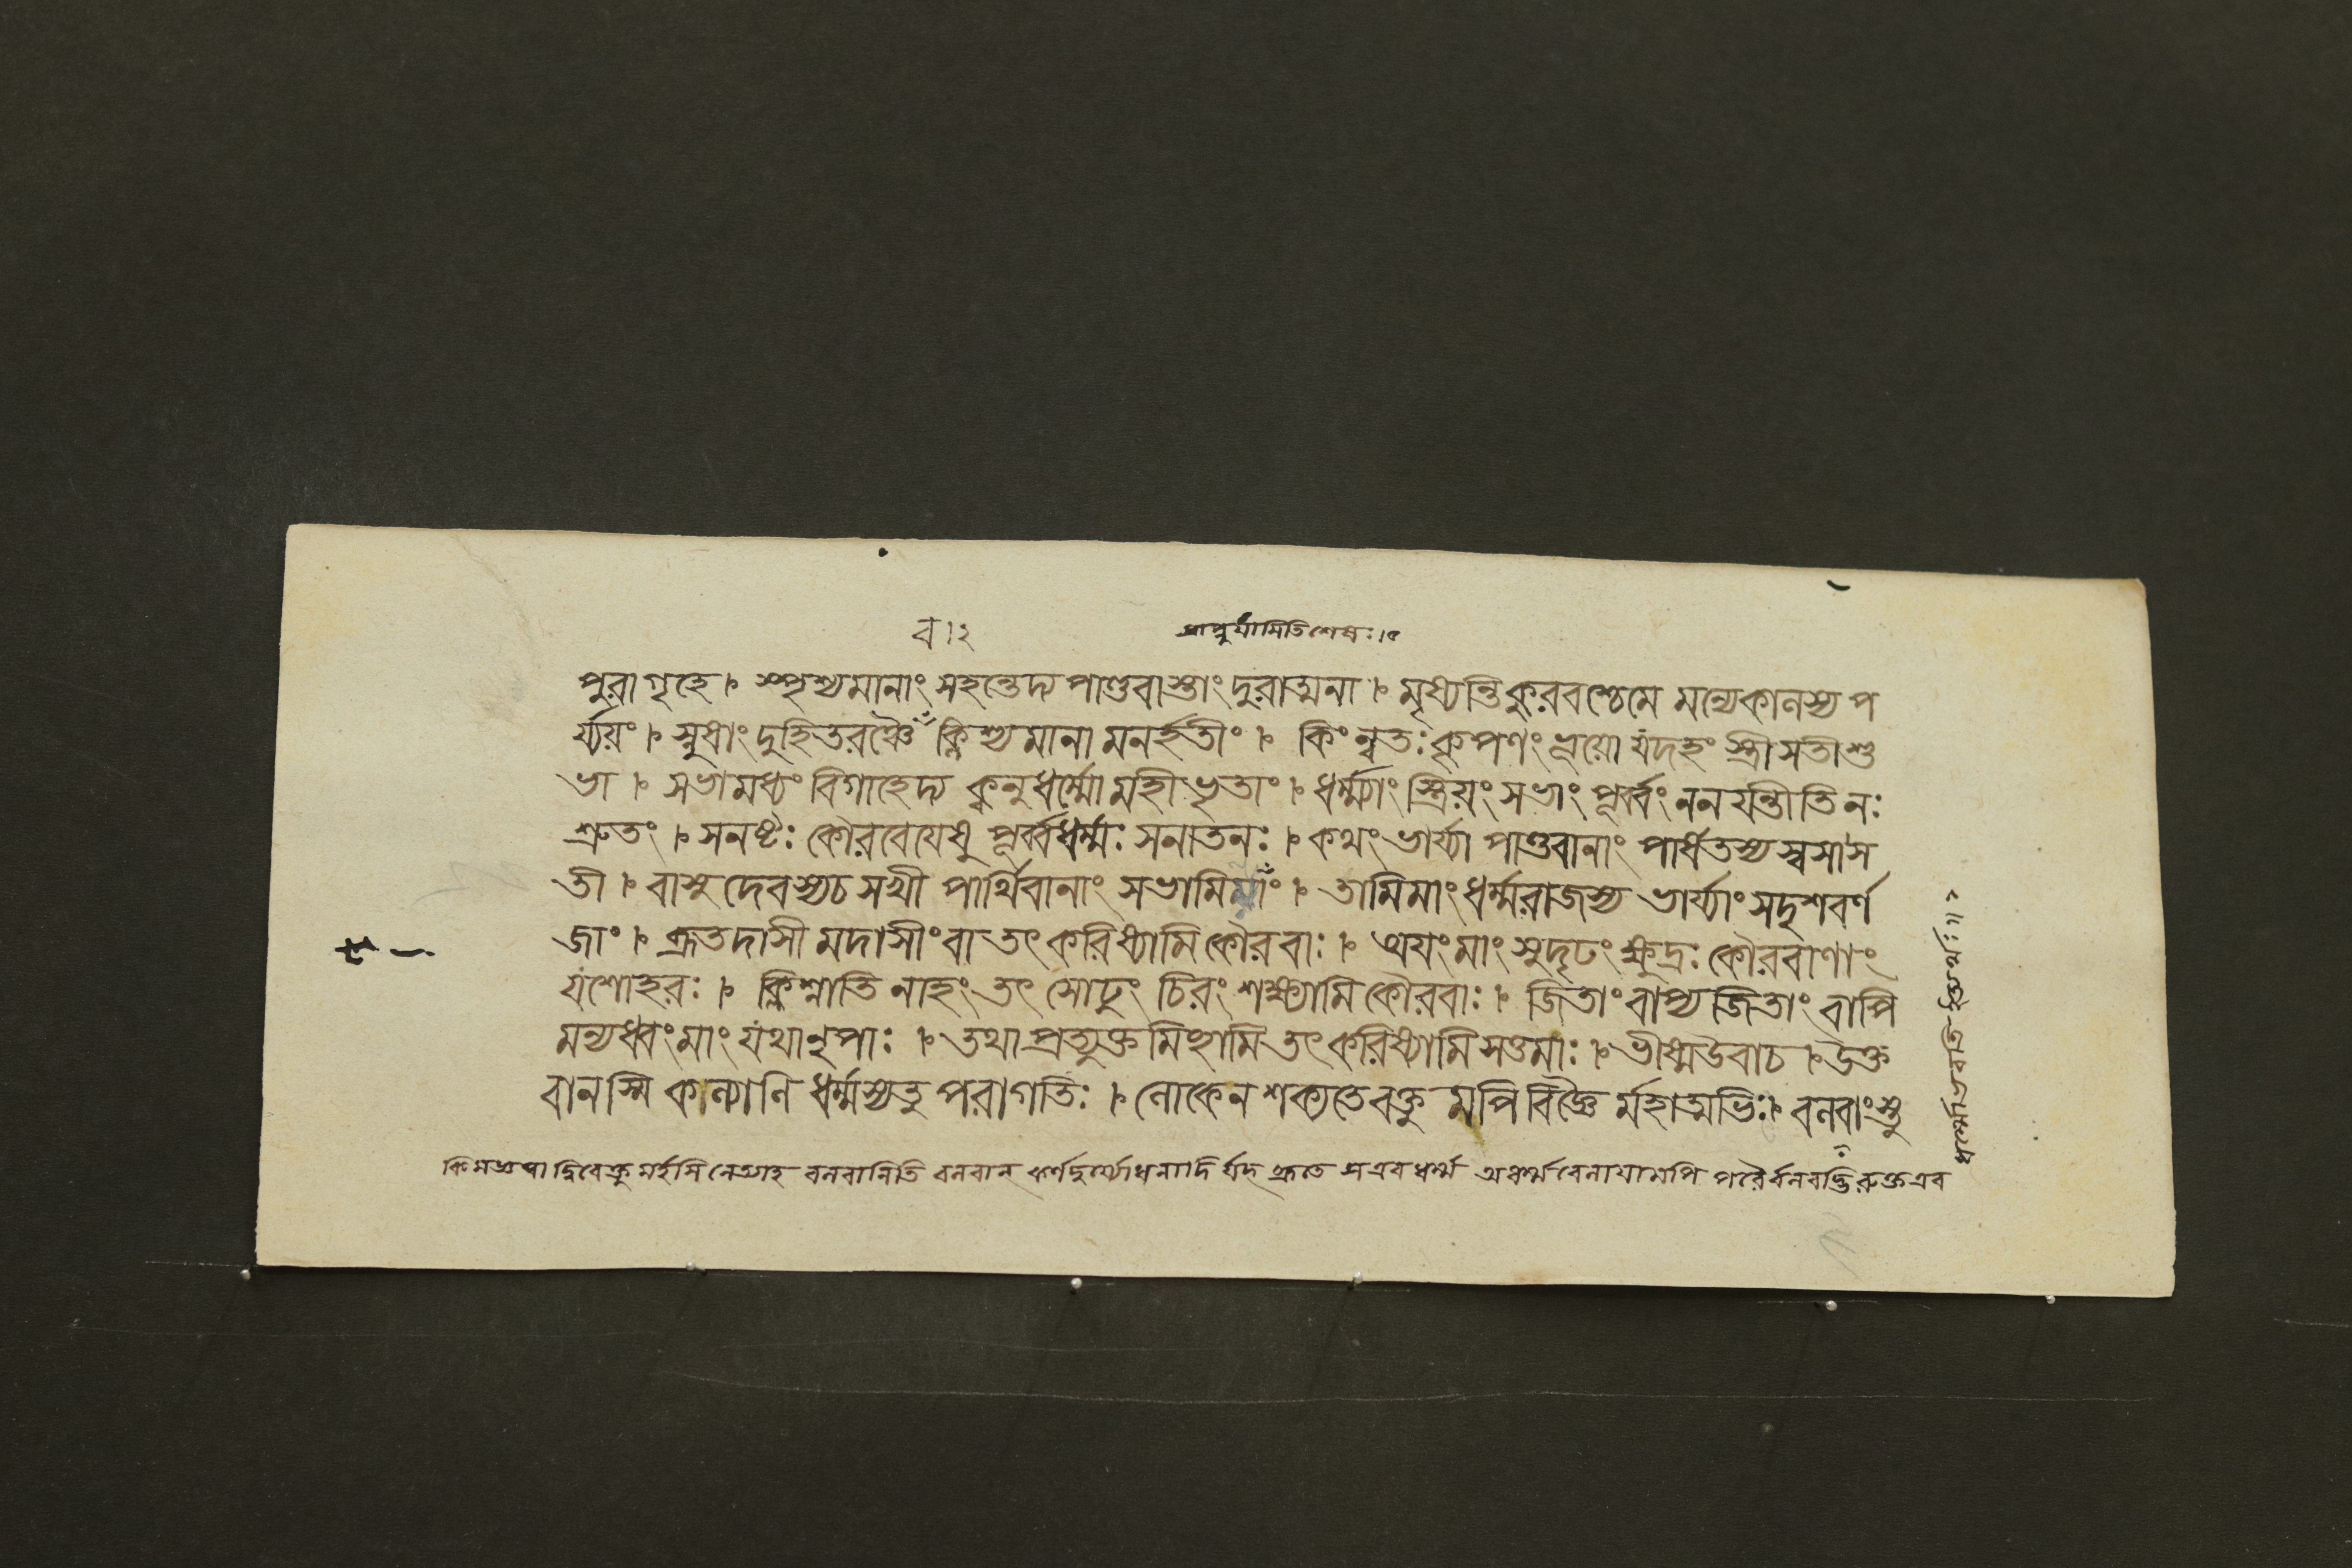 ব।২
প্রাপ্নুয়ামিতিশেষঃ।৫
পুরাগৃহে। স্পৃশ্যমানাং সহন্তেদ্য পাণ্ডবাস্তাং দুরাত্মনা। মৃষ্যন্তিকুরবশ্চেমে মন্যেকালস্য প
র্য্যয়ং। স্নুষাং দুহিতরঞ্চৈব ক্লিশ্যমানামনর্হতীং। কিংন্বতঃকৃপণংভূয়ো যদহং স্ত্রীসতীশু
ভা। সভামধ্যং বিগাহেদ্য ক্বনুধর্ম্মোমহীভৃতাং। ধর্ম্ম্যাং স্ত্রিয়ং সভাং পূর্ব্বং ননয়ন্তীতিনঃ
শ্রুতং। সনষ্টঃ কৌরবেয়েষু পূর্ব্বধর্ম্মঃ সনাতনঃ। কথংভার্য্যা পাণ্ডবানাং পার্ষতস্য স্বসাস
তী। বাসুদেবস্যচ সখী পার্থিবানাং সভামিমাং। তামিমাং ধর্ম্মরাজস্য ভার্য্যাং সদৃশবর্ণ
জাং। ব্রূতদাসীমদাসীংবা তৎকরিষ্যামিকৌরবাঃ। অয়ংমাং সুদৃঢং ক্ষুদ্রঃ কৌরবাণাং
যশোহরঃ। ক্লিশ্নাতি নাহং তৎ সোঢুং চিরং শক্ষ্যামি কৌরবাঃ। জিতাং বাপ্য জিতাং বাপি
মন্যধ্বংমাং যথানৃপাঃ। তথাপ্রত্যুক্তমিচ্ছামি তৎকরিষ্যামি সত্তমাঃ। ভীষ্মউবাচ। উক্ত
বানস্মি কল্যাণি ধর্ম্মস্যতু পরাগতিঃ। লোকেন শক্যতেবক্তু মপি বিজ্ঞৈ র্মহাত্মভিঃ। বলবাংস্তু
নেত্যাহ বলবানিতি বলবান্ কর্ণদুর্য্যোধনাদি র্যদ্ ব্রূতে সএবধর্ম্ম অধর্ম্মবেলায়ামপি পরৈর্বলবদ্ভিরুক্তএব
ধর্ম্মোভবতি